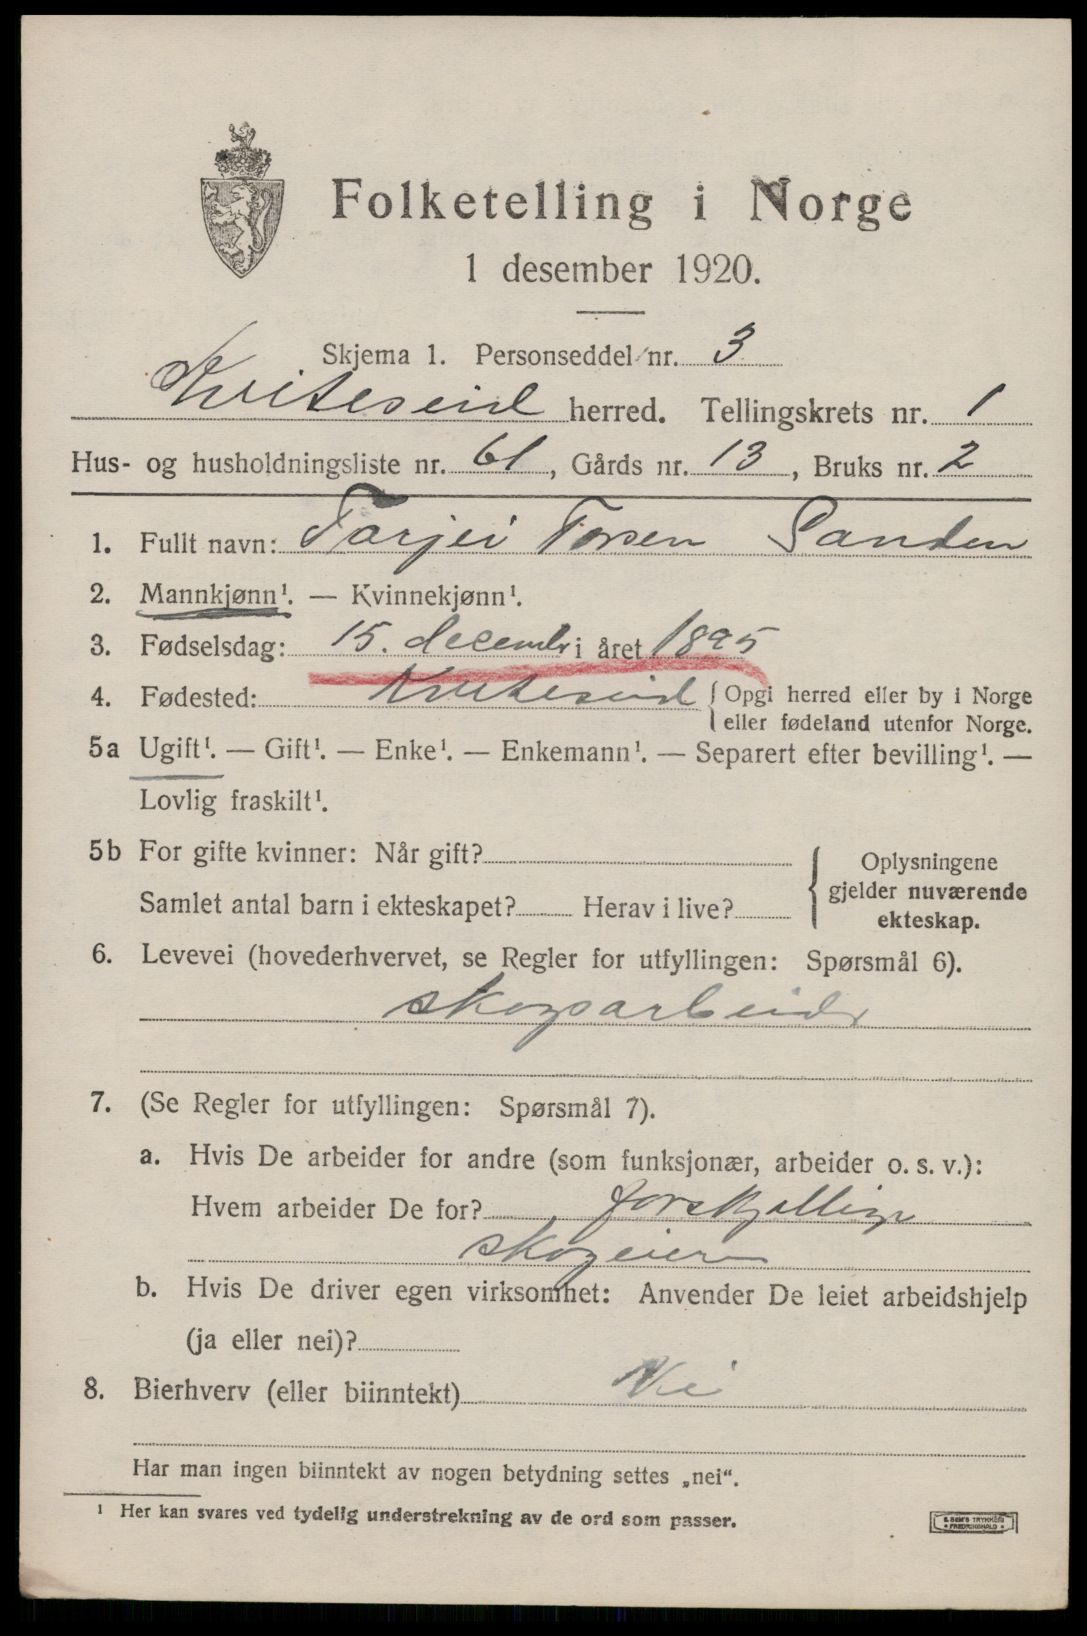 Folketelling i Norge
1 desember 1920.
Skjema 1. Personseddel nr. 3
Kviteseid herred. Tellingskrets nr. 1
Hus- og husholdningsliste nr. 61, Gårds nr. 13, Bruks nr. 2
1. Fullt navn: Tarjei Torsen Sanden
2. Mannkjønn¹. — Kvinnekjønn¹.
3. Fødselsdag: 15. decembr i året 1895
4. Fødested: Kviteseid { Opgi herred eller by i Norge
eller fødeland utenfor Norge.
5a Ugift¹. — Gift¹. — Enke¹. — Enkemann¹. — Separert efter bevilling¹. —
Lovlig fraskilt¹.
5b For gifte kvinner: Når gift?
Samlet antal barn i ekteskapet? Herav i live?
{ Oplysningene
gjelder nuværende
ekteskap.
6. Levevei (hovederhvervet, se Regler for utfyllingen: Spørsmål 6).
skogsarbeidr
7. (Se Regler for utfyllingen: Spørsmål 7).
a. Hvis De arbeider for andre (som funksjonær, arbeider o. s. v.):
Hvem arbeider De for? forskjællige
skogeiere
b. Hvis De driver egen virksomhet: Anvender De leiet arbeidshjelp
(ja eller nei)?
8. Bierhverv (eller biinntekt) Nei
Har man ingen biinntekt av nogen betydning settes „nei“.
¹ Her kan svares ved tydelig understrekning av de ord som passer.
E. SEM'S TRYKKERI
• FREDRIKSHALD •